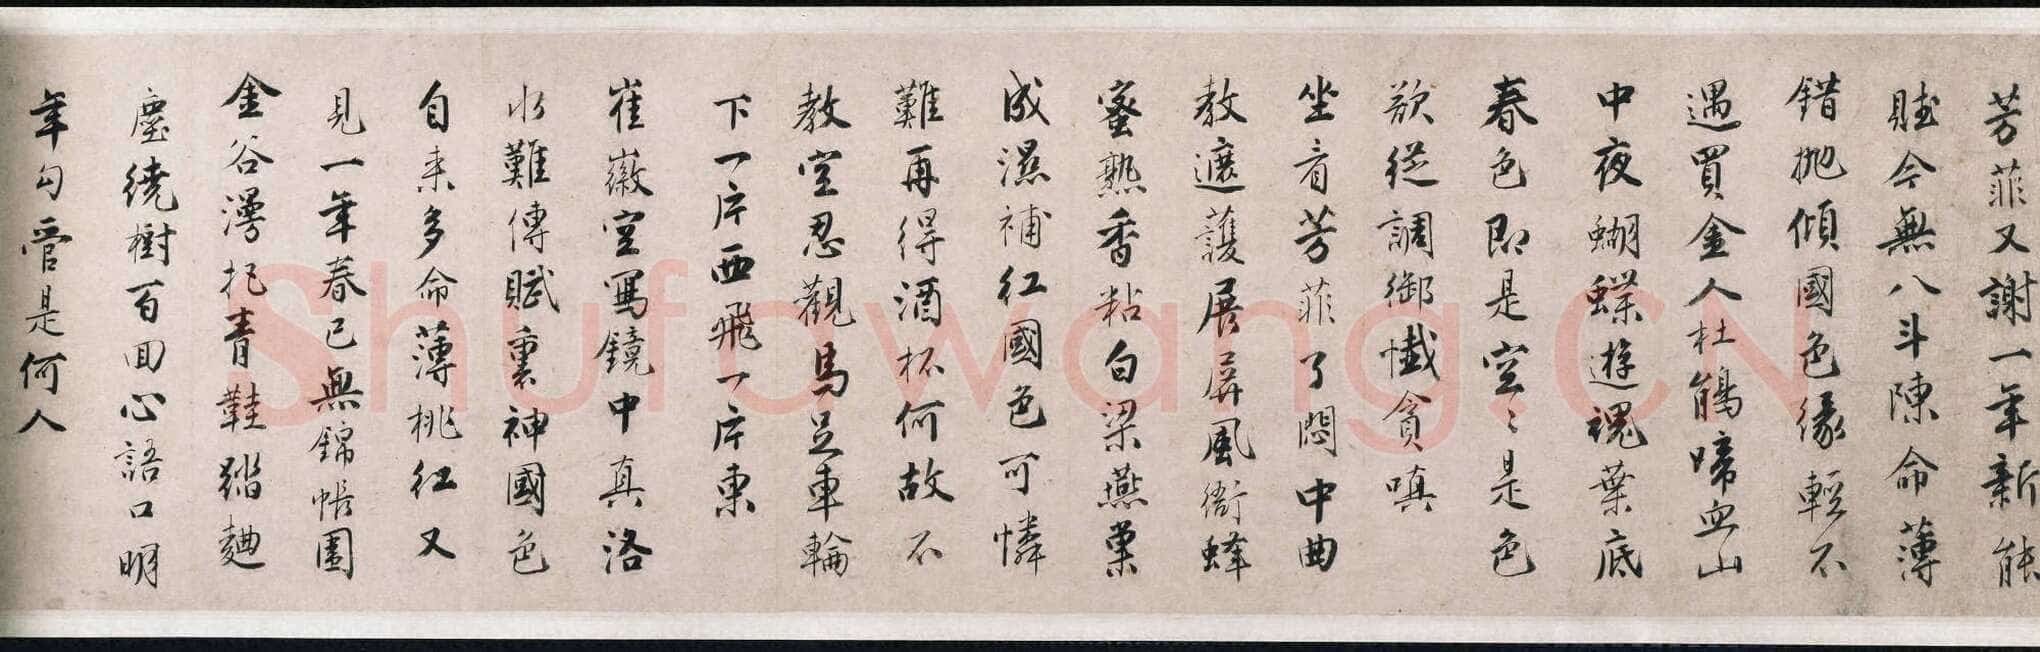 芳菲又謝一年新能
賦今無八斗陳命薄
錯抛傾國色緣輕不
遇買金人杜鵑啼血山
中夜蝴蝶遊魂葉底
春色即是空〻是色
欲從調御懺貪嗔
坐看芳菲了悶中曲
教遮護展屏風銜蜂
蜜熟香粘白梁燕巢
成濕補紅國色可憐
難再得酒杯何故不
教空忍觀馬足車輪
下一片西飛一片東
崔徽空寫鏡中真洛
水難傳賦裏神國色
自来多命薄桃紅又
見一年春已無錦帳圍
金谷漫把青鞋踏麯
塵繞樹百回心語口明
年勾管是何人
Shufawang.CN